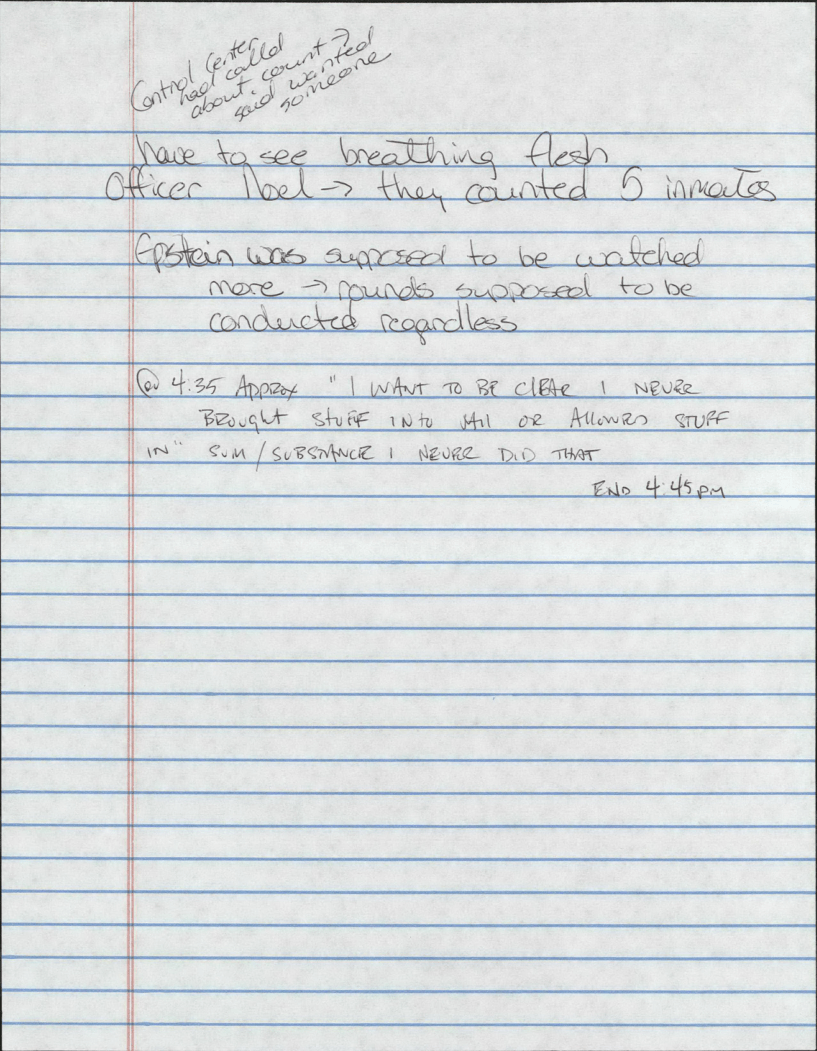 Control Center
had called
about count →
said wanted
someone
have to see breathing flesh
Officer Noel → they counted 5 inmates
Epstein was supposed to be watched
more → rounds supposed to be
conducted regardless
@ 4:35 Approx "I WANT TO BE CLEAR I NEVER
BROUGHT STUFF INTO JAIL OR ALLOWED STUFF
IN" SUM/SUBSTANCE I NEVER DID THAT
END 4:45 PM